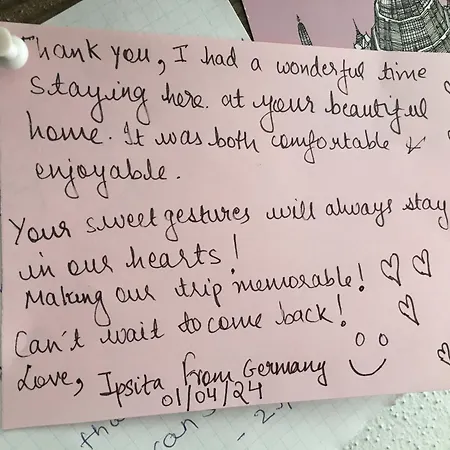 Thank you, I had a wonderful time
Staying here. at your beautiful
home. It was both comfortable &
enjoyable.
Your sweet gestures will always stay
in our hearts!
Making our trip memorable!
Can't wait to come back!
Love, Ipsita from Germany
01/04/24